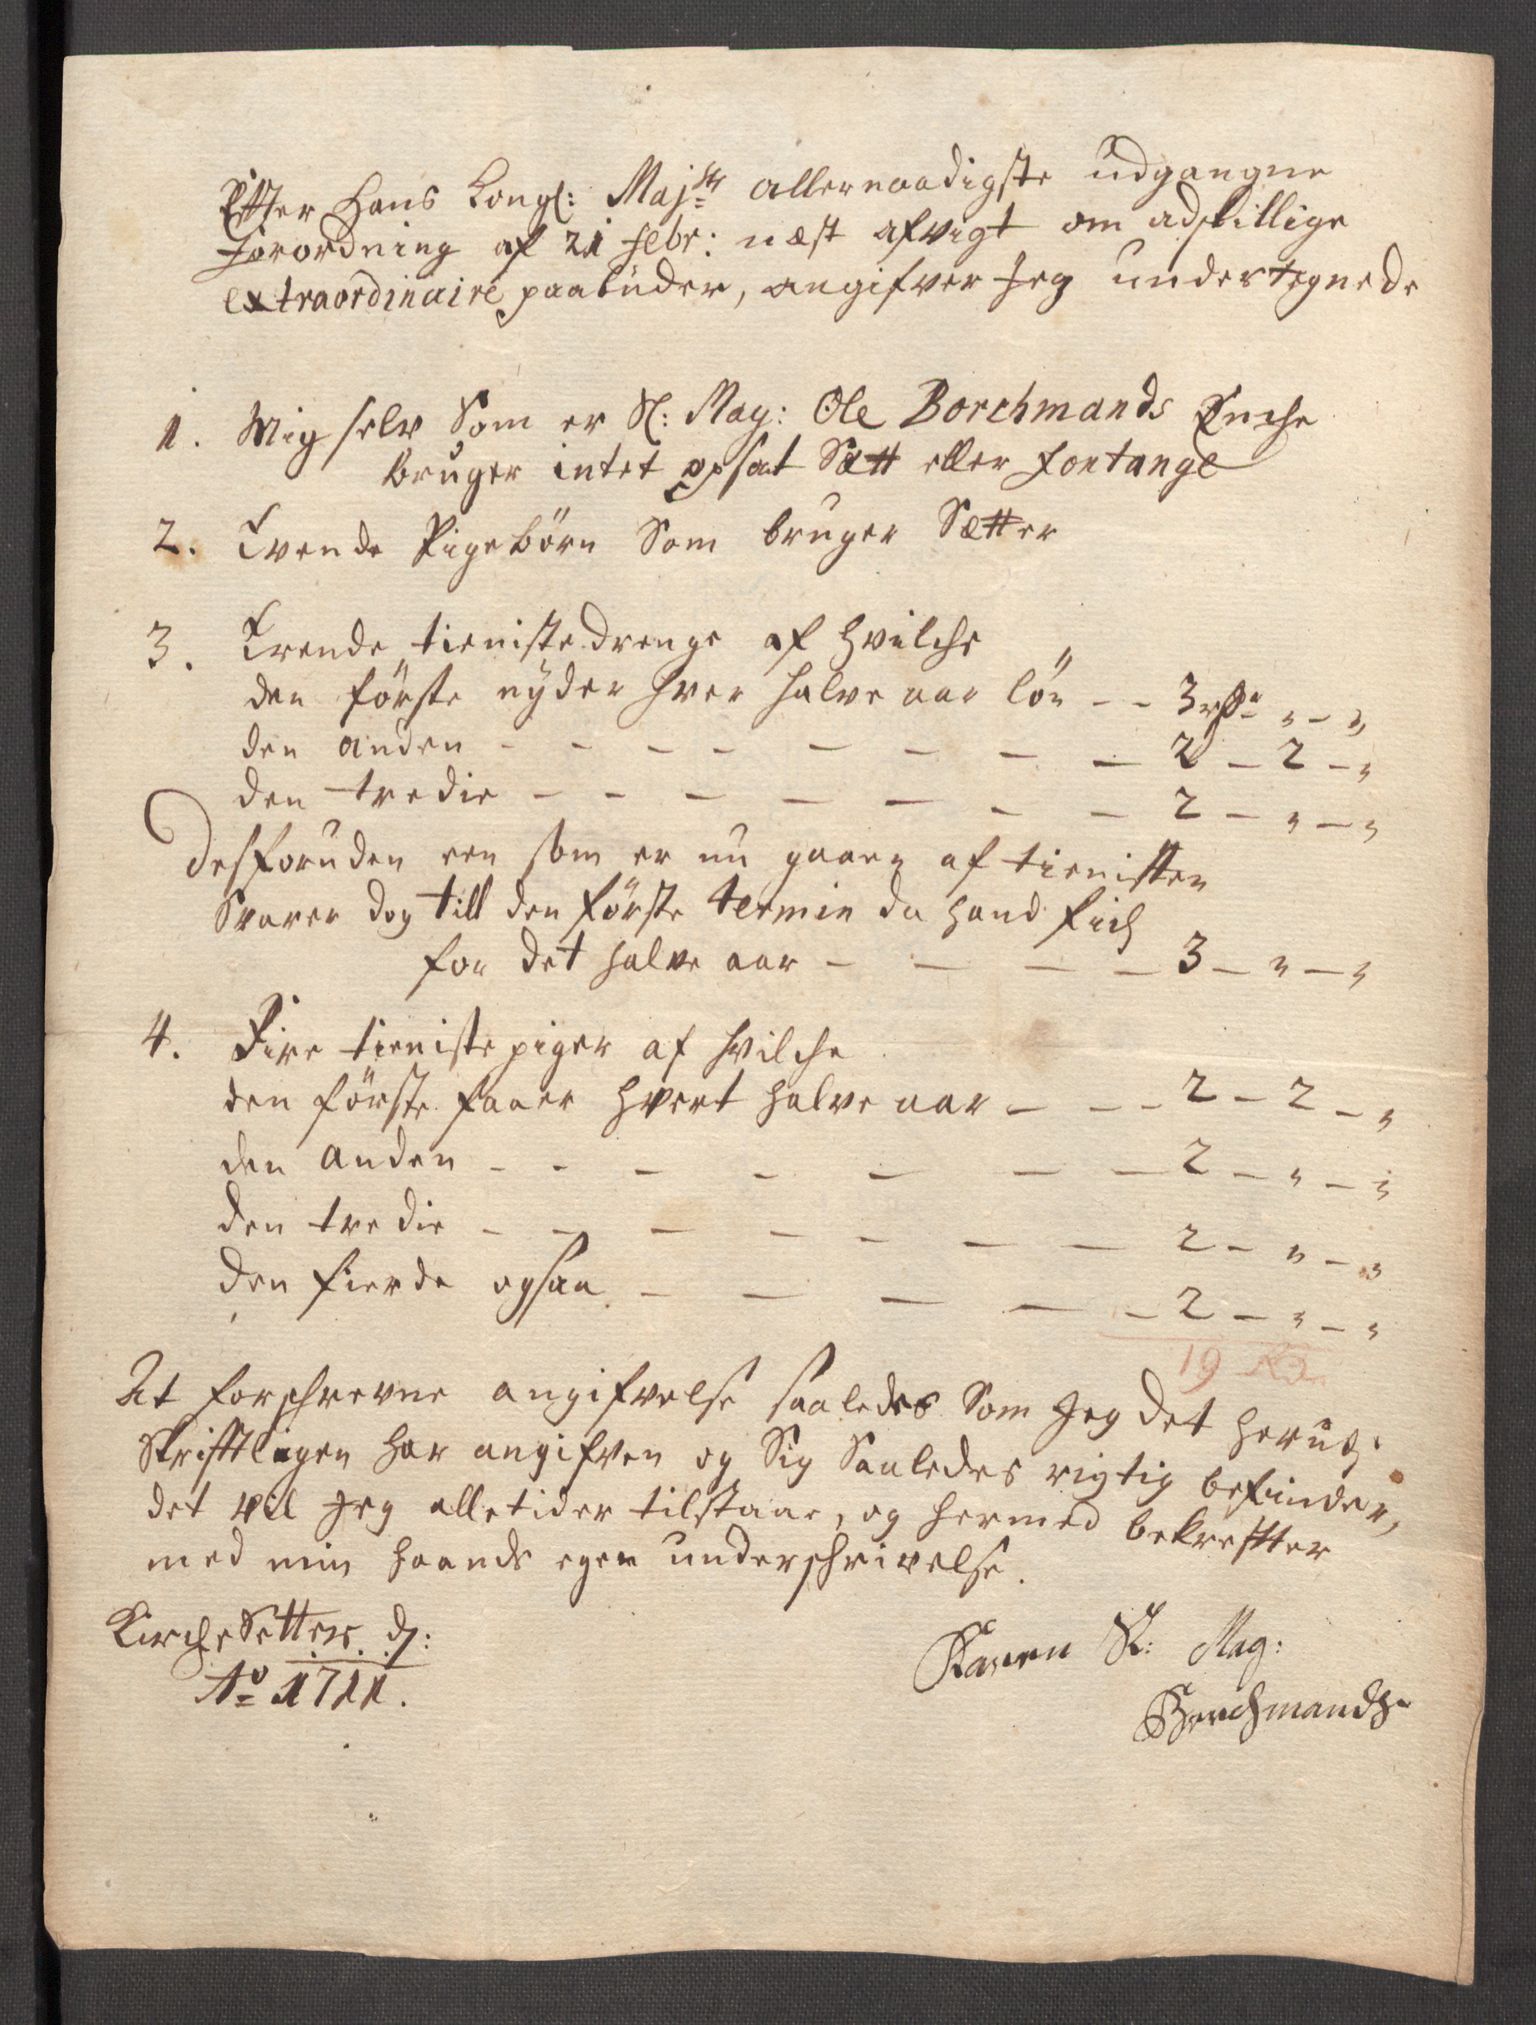 Effter Hans Kongl: Maj:ts allernaadigste udgangne
Forordning af 21 Febr: næst afvigt om adskillige
extraordinaire paabuder, angifver Jeg undertegnede
1. Mig selv Som er Sl: Mag: Ole Borchmands Enche
bruger intet opsat Sætt eller fontange
2. Tvende Pigebörn Som bruger Sætter
3. Trende tienistedrenge af hvilche
den förste nyder hver halve aar lön - - 3 rdr " - "
den anden - - - - - - - - - 2 - 2 - "
den tredie - - - - - - - 2 - " - "
Desforuden een som er nu gaaen af tienisten
Svarer dog till den förste termin da hand fich
for det halve aar - - - - 3 - " - "
4. Fire tieniste piger af hvilche
den förste faaer hvert halve aar - - - 2 - 2 - "
den anden - - - - - - - 2 - " - "
den tredie - - - - - - - 2 - " - "
den fierde ogsaa - - - - - 2 - " - "
19
At forschrevne angifvelse saaledes Som Jeg det herudj
Skrifftligen har angifven og Sig Saaledes rigtig befinder,
det vil Jeg alletider tilstaae, og hermed bekreffter
med min haands egen underschrivelse.
KircheSetter d:
Ao 1711.
Karen Sl: Mag:
Borchmands